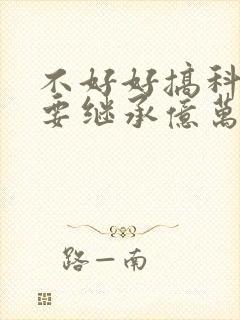 不好好搞科
要继承億萬
路一南